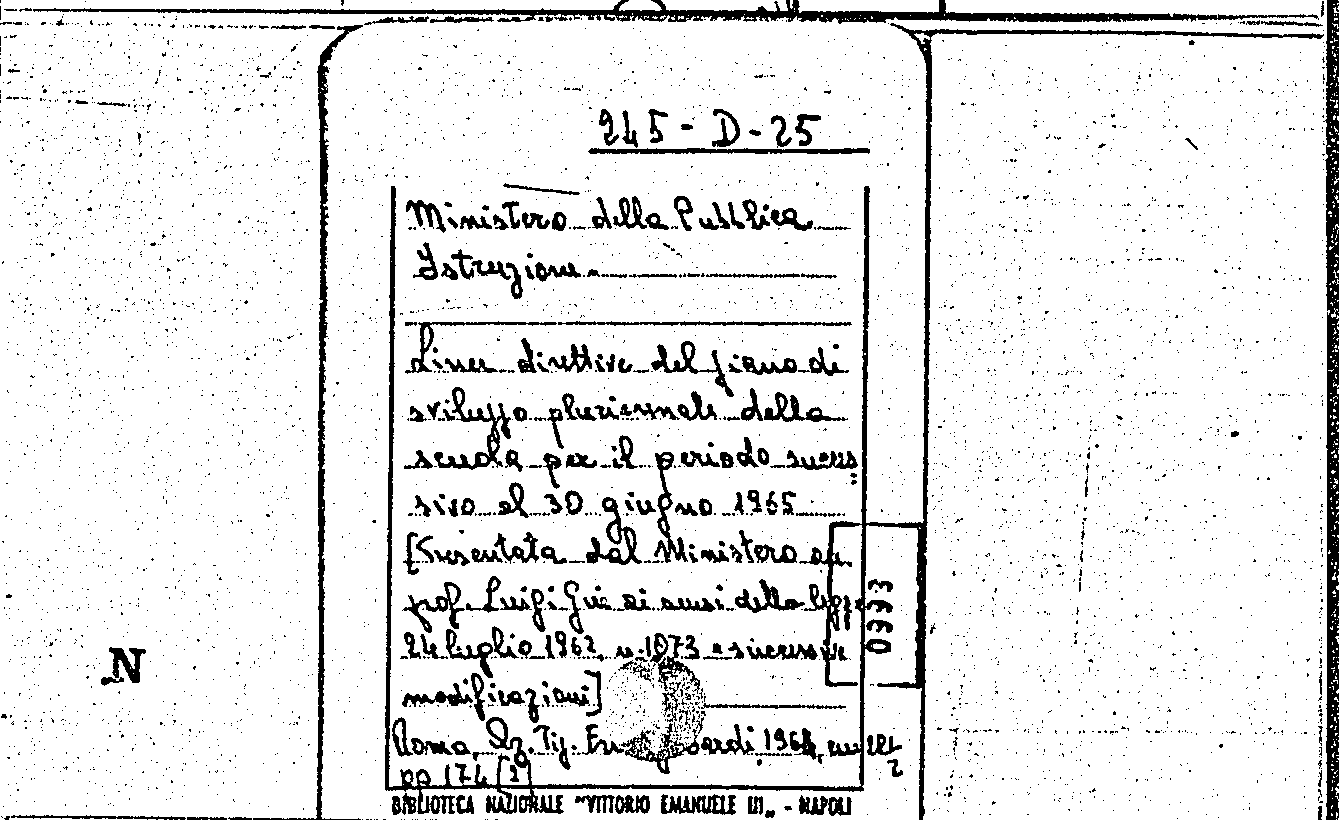 245-D-25
Ministero della Pubblica
Istruzione.
Linee direttive del piano di
sviluppo pluriennale della
scuola per il periodo succes
sivo al 30 giugno 1965
[Presentata dal Ministero
prof. Luigi Gui ai sensi della legge
24 luglio 1962, n. 1073 e successive
modificazioni]
Roma, Tip. 1964,
pp 174 [2]
0993
N
BIBLIOTECA NAZIONALE "VITTORIO EMANUELE III" - NAPOLI